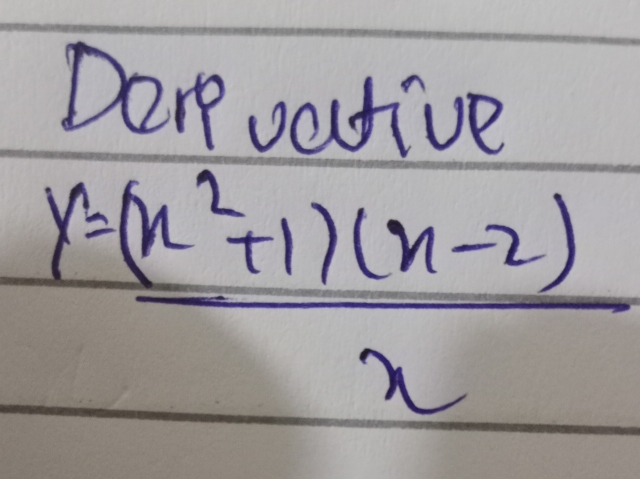 Derivative
y=(x²+1)(x-2)
x